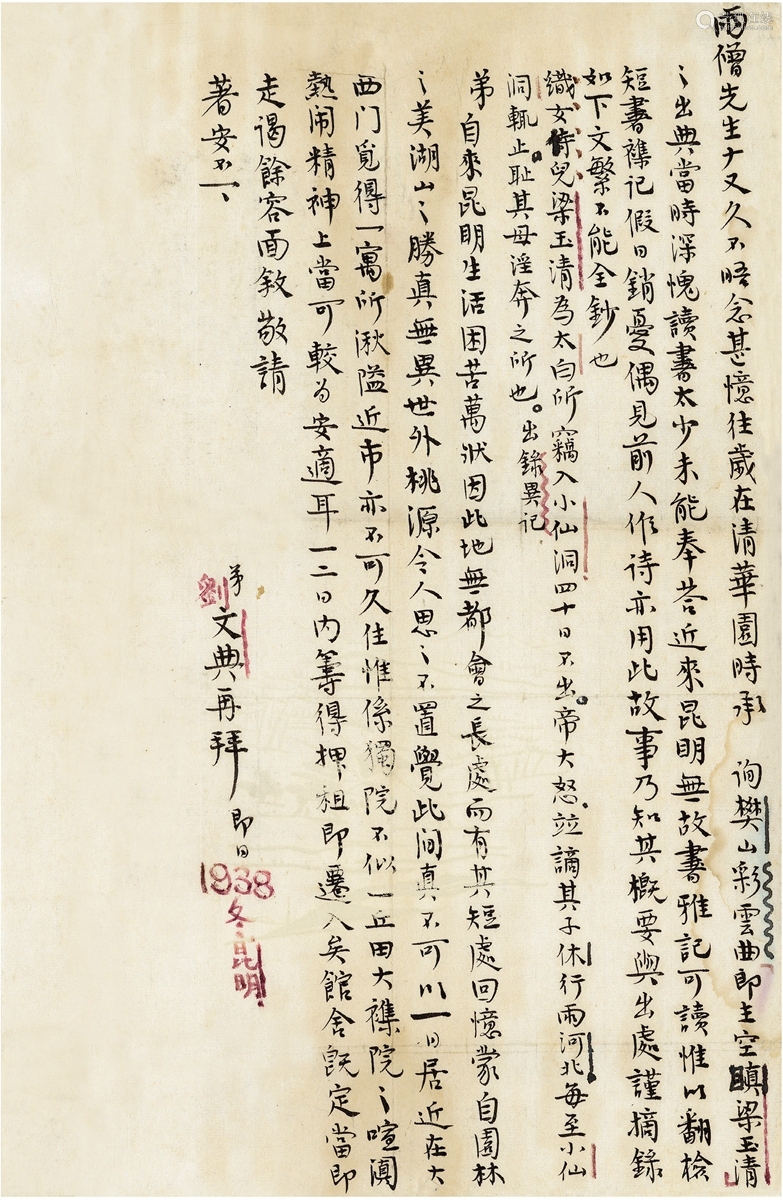 雨僧先生大又久不晤念甚憶往歲在清華園時承 詢樊山彩雲曲即主空瞋梁玉清
之出典當時深愧讀書太少未能奉荅近來昆明無故書雅記可讀惟以翻檢
短書襍記假日銷憂偶見前人作詩亦用此故事乃知其概要與出處謹摘錄
如下文繁不能全鈔也
織女侍兒梁玉清為太白所竊入小仙洞四十日不出。帝大怒。並謫其子休行雨河北每至小仙
洞輒止。恥其母淫奔之所也。出錄異記
弟自來昆明生活困苦萬狀因此地無都會之長處而有其短處回憶蒙自園林
之美湖山之勝真無異世外桃源令人思之不置覺此间真不可以一日居近在大
西门覓得一寓所湫隘近市亦不可久住惟係獨院不似一丘田大襍院之喧闐
熱闹精神上當可較为安適耳一二日内籌得押租即遷入矣館舍既定當即
走谒餘容面敘敬請
著安不一一
弟劉文典再拜 即日
1938冬昆明